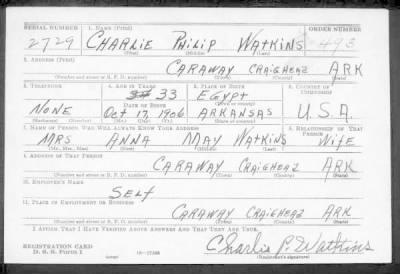 SERIAL NUMBER 1. NAME (Print) ORDER NUMBER
2729 CHARLIE PHILIP WATKINS 493
(First) (Middle) (Last)
2. ADDRESS (Print)
CARAWAY CRAIGHEAD ARK
(Number and street or R. F. D. number) (Town) (County) (State)
3. TELEPHONE 4. AGE IN YEARS 5. PLACE OF BIRTH 6. COUNTRY OF CITIZENSHIP
33 EGYPT
DATE OF BIRTH
NONE Oct 17, 1906 ARKANSAS U.S.A.
(Exchange) (Number) (Mo.) (Day) (Yr.) (State or country)
7. NAME OF PERSON WHO WILL ALWAYS KNOW YOUR ADDRESS 8. RELATIONSHIP OF THAT PERSON
MRS ANNA MAY WATKINS WIFE
(Mr., Mrs., Miss) (First) (Middle) (Last)
9. ADDRESS OF THAT PERSON
CARAWAY CRAIGHEAD ARK
(Number and street or R. F. D. number) (Town) (County) (State)
10. EMPLOYER'S NAME
SELF
11. PLACE OF EMPLOYMENT OR BUSINESS
CARAWAY CRAIGHEAD ARK
(Number and street or R. F. D. number) (Town) (County) (State)
I AFFIRM THAT I HAVE VERIFIED ABOVE ANSWERS AND THAT THEY ARE TRUE.
REGISTRATION CARD
D. S. S. Form 1
Charlie P. Watkins
(Registrant's signature)